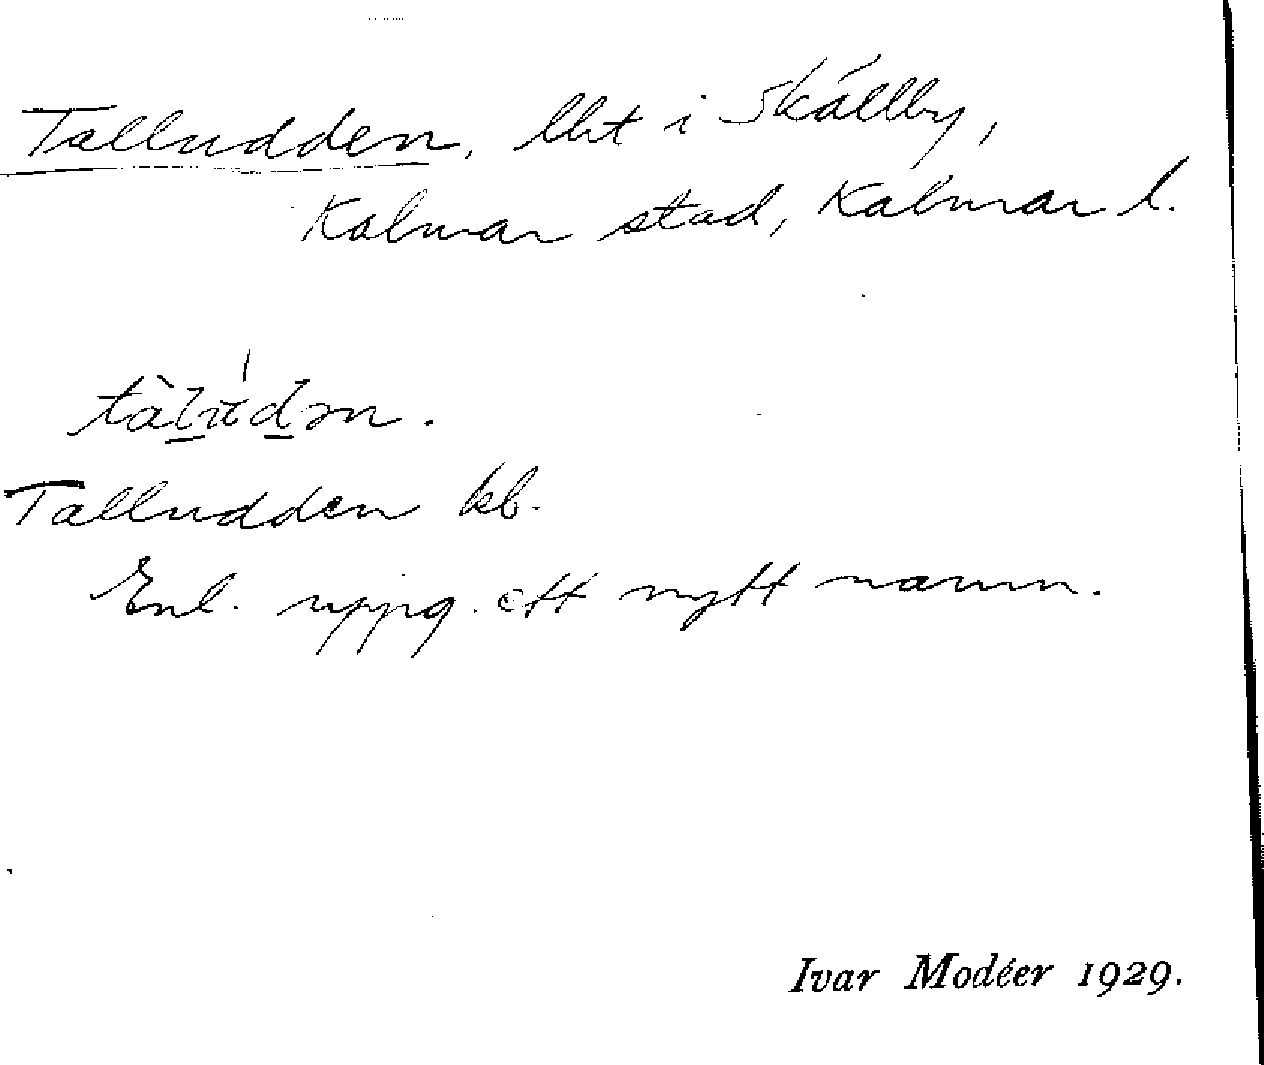 Talludden, lht i Skällby,
Kalmar stad, Kalmar l.
tàlúdən.
Talludden kb.
Enl. uppg. ett nytt namn.
Ivar Modéer 1929.